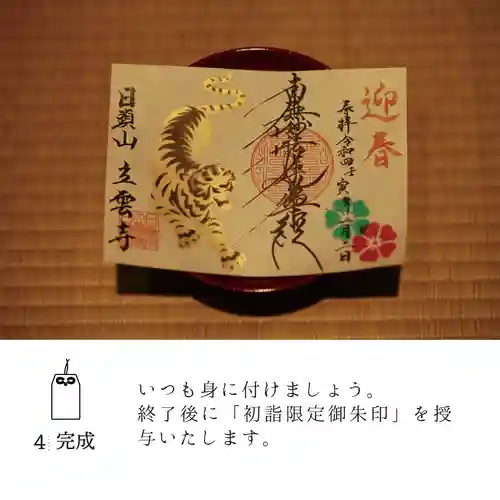 迎春
奉拝 令和四壬寅年一月二日
南無妙法蓮華経
日蓮山 立雲寺
いつも身に付けましょう。
終了後に「初詣限定御朱印」を授
与いたします。
4 完成